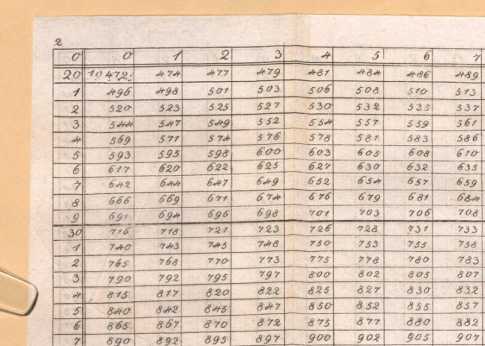 2
0 0 1 2 3 4 5 6 7
20 10 472 474 477 479 481 484 486 489
1 496 498 501 503 506 508 510 513
2 520 523 525 527 530 532 535 537
3 544 547 549 552 554 557 559 561
4 569 571 574 576 578 581 583 586
5 593 595 598 600 603 605 608 610
6 617 620 622 625 627 630 632 635
7 642 644 647 649 652 654 657 659
8 666 669 671 674 676 679 681 684
9 691 694 696 698 701 703 706 708
30 716 718 721 723 726 728 731 733
1 740 743 745 748 750 753 755 758
2 765 768 770 773 775 778 780 783
3 790 792 795 797 800 802 805 807
4 815 817 820 822 825 827 830 832
5 840 842 845 847 850 852 855 857
6 865 867 870 872 875 877 880 882
7 890 892 895 897 900 902 905 907